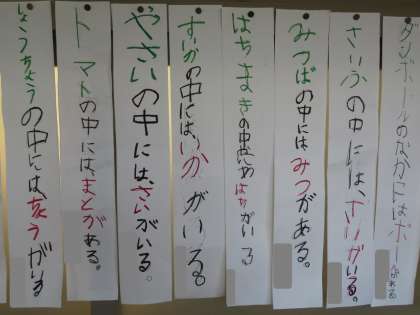 ダンボールのなかにはボールがある
さいふの中には、さいがいる。
みつばの中にはみつがある。
はちまきの中にははちがいる
すいかの中には、いかがいる。
やさいの中には、さいがいる。
トマトの中には、まとがある。
しょうちょうの中には、ちょうがいる